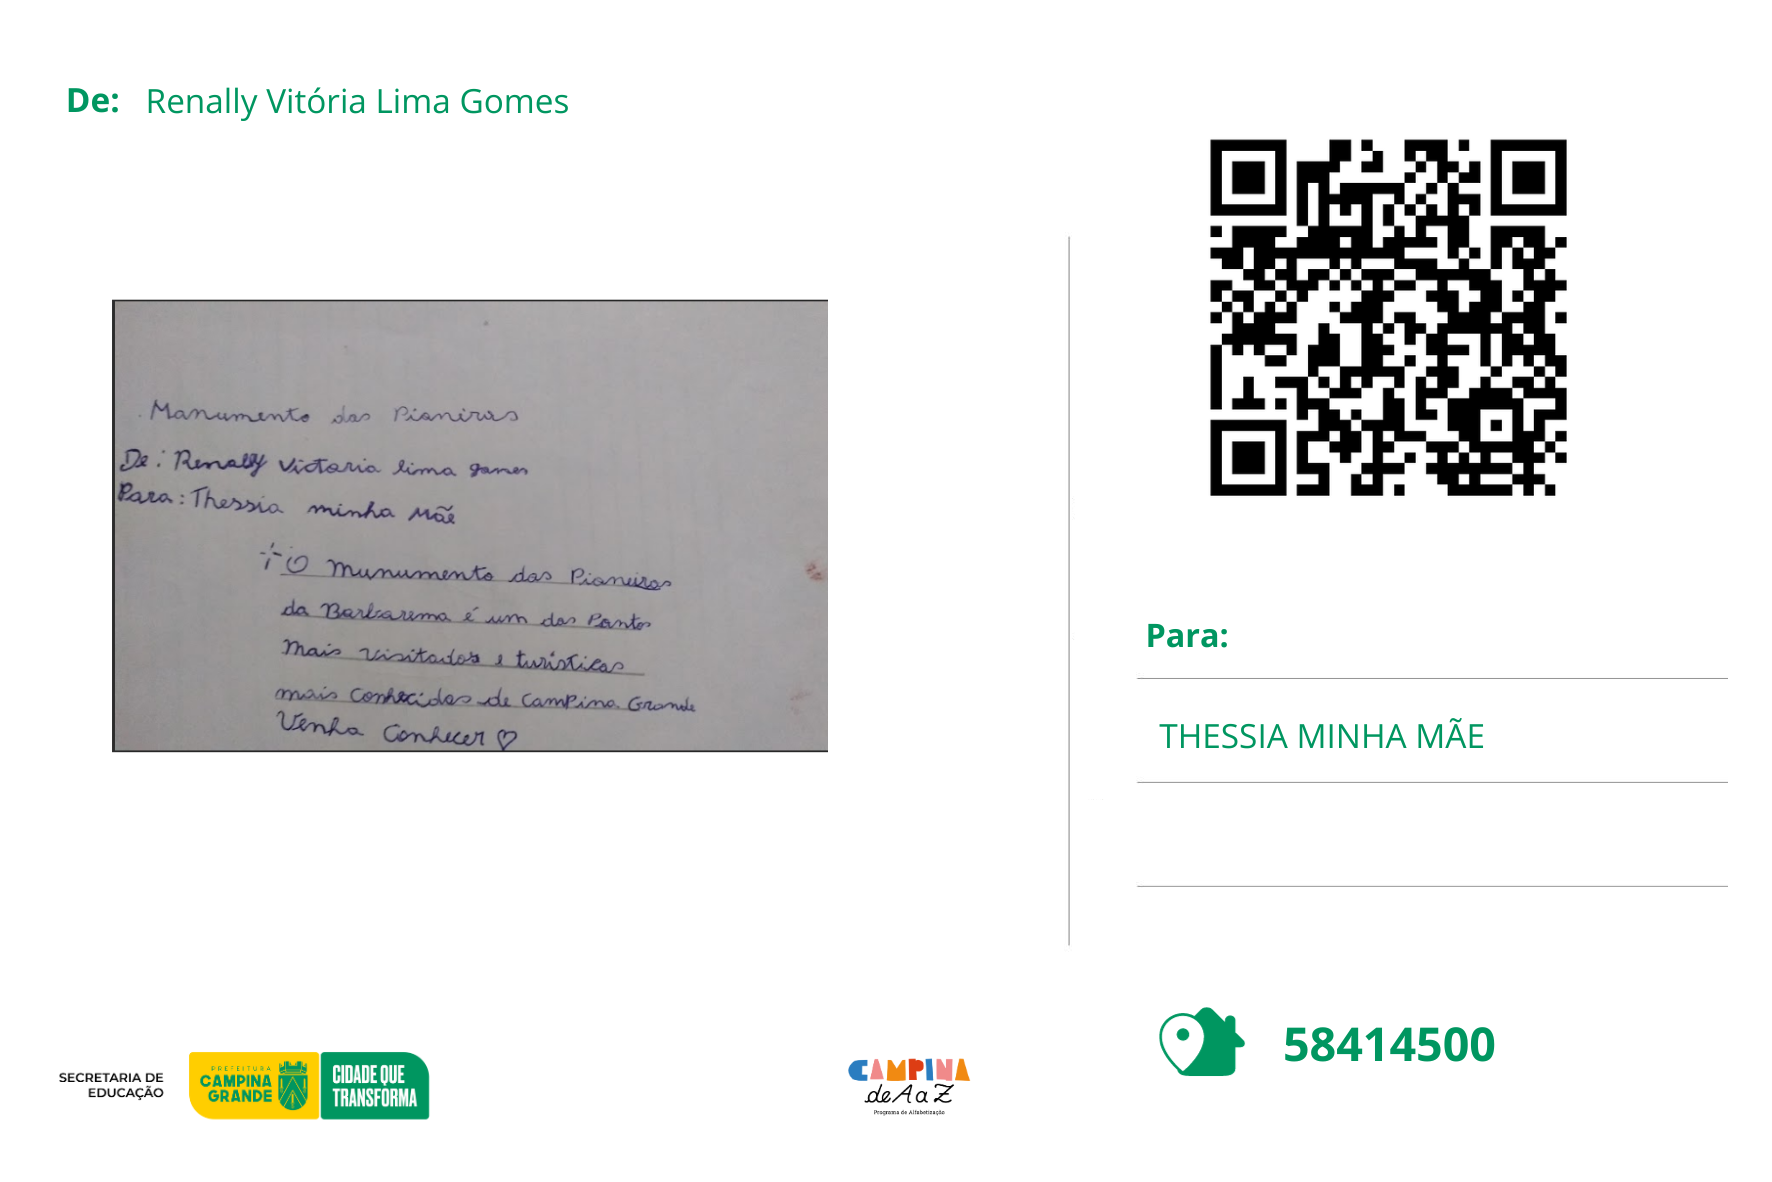 De: Renally Vitória Lima Gomes
Manumento das Pianeiras
De: Renally Victoria lima gomes
Para: Thessia minha Mãe
O Munumento dos Pianeiros
da Barbarema é um dos Pontos
Mais visitados e turísticas
mais Conhecidos de Campina Grande
Venha Conhecer ♡
Para:
THESSIA MINHA MÃE
58414500
SECRETARIA DE
EDUCAÇÃO
PREFEITURA
CAMPINA
GRANDE
CIDADE QUE
TRANSFORMA
CAMPINA
de A a Z
Programa de Alfabetização